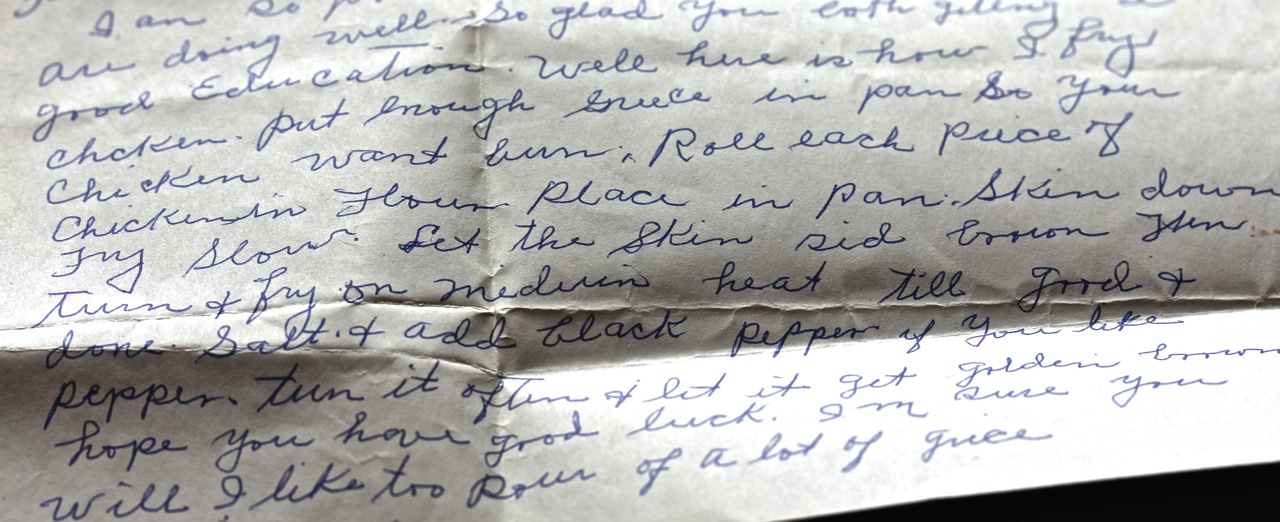 I am so
are doing well. So glad you both getting a
good Education. Well here is how I fry
chcken. put enough greece in pan So your
Chicken want burn. Roll each piece of
Chicken in Flour place in pan. Skin down
Fry slow. Let the skin sid brown Then
turn & fry on mediuin heat till good &
done. Salt. & add black pepper if you like
pepper. turn it often & let it get golden brown
hope you have good luck. I'm sure you
will I like too pour of a lot of grice